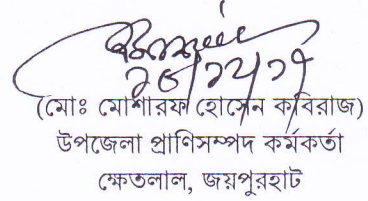 (মোঃ মোশারফ হোসেন কবিরাজ)
উপজেলা প্রাণিসম্পদ কর্মকর্তা
ক্ষেতলাল, জয়পুরহাট